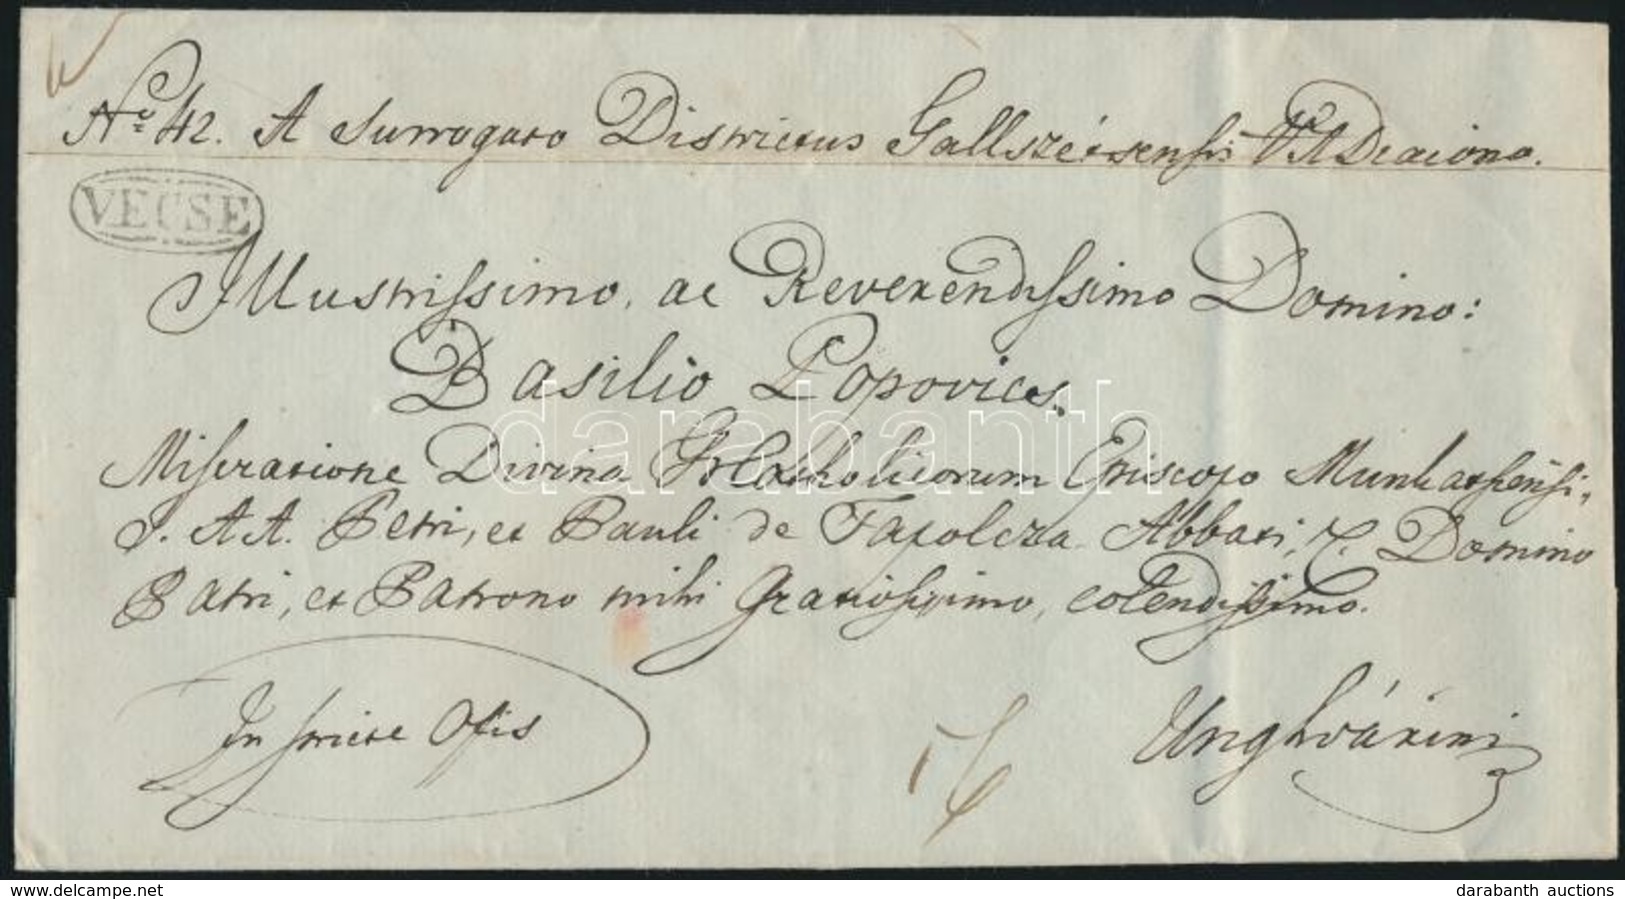 No 42. A Surrogato Districtus Gallszécsensis V. A Diacono.
VECSE
Illustrissimo, ac Reverendissimo Domino:
Basilio Popovics.
Miseratione Divina Gr Catholicorum Episcopo Munkatsiensi,
S. A A. Petri, et Pauli de Tapolcza Abbati, &. Domino
Patri, et Patrono mihi Gratiosissimo, colendissimo.
In serie Offis
Unghvárini
darabanth
www.delcampe.net
darabanth auctions